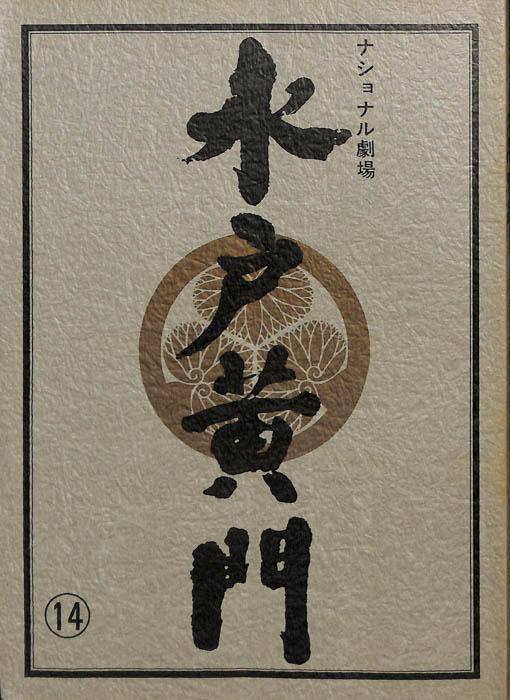 ナショナル劇場
水戸黄門
⑭